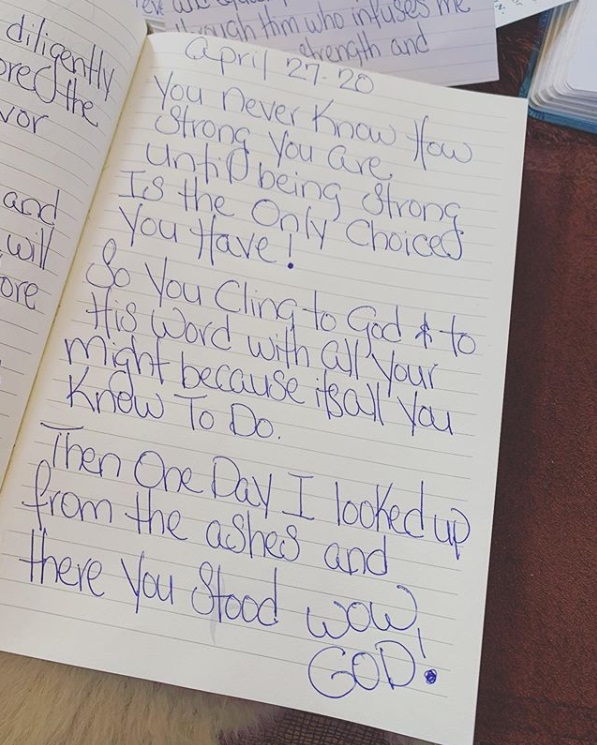 diligently
the
and
will
ore
through Him who infuses me
strength and
April 27. 20
You never Know How
Strong You are
Until being Strong
Is the Only Choice
You Have!
So You Cling to God & to
His Word with all Your
might because itsall You
Know To Do.
Then One Day I looked up
from the ashes and
there You Stood WOW,
GOD!